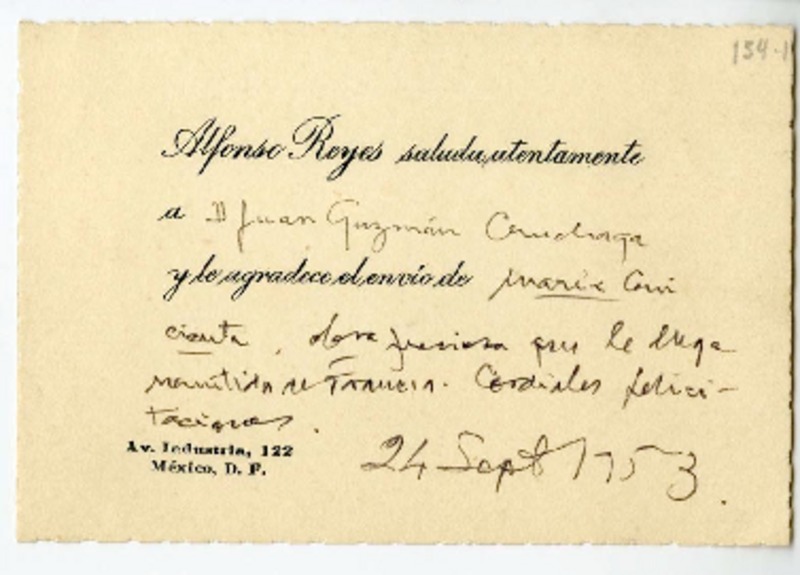 154-1
Alfonso Reyes saluda atentamente
a D Juan Guzmán Cruchaga
y le agradece el envío de María Ceni
cienta, obra preciosa que le llega
remitida de Francia. Cordiales felici-
taciones.
Av. Industria, 122
México, D. F.
24 Sept 1953.